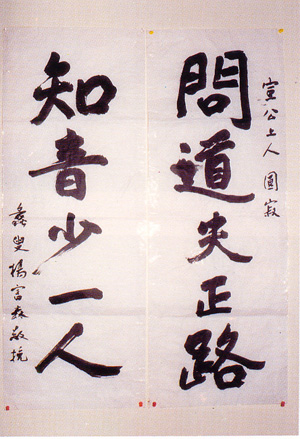 宣公上人 圓寂
問道失正路
知音少一人
叟楊富森敬挽